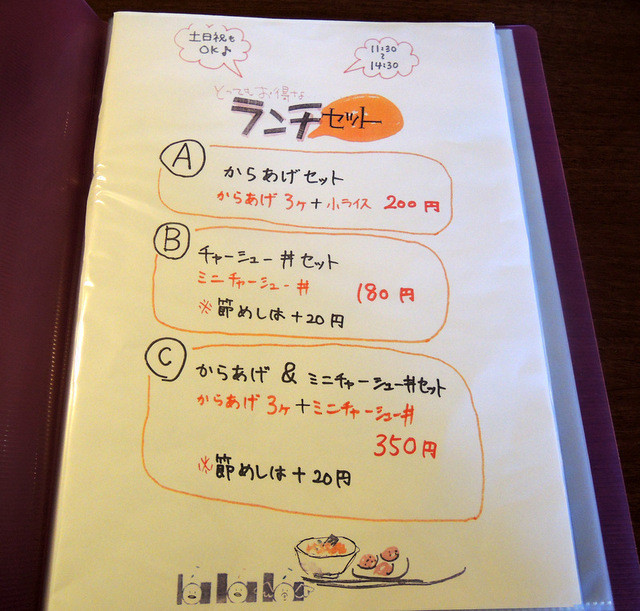 土日祝も
OK♪
11:30
〜
14:30
とってもお得な
ランチセット
A
からあげセット
からあげ 3ヶ+小ライス 200円
B
チャーシュー丼セット
ミニチャーシュー丼 180円
※節めしは+20円
C
からあげ & ミニチャーシュー丼セット
からあげ 3ヶ+ミニチャーシュー丼
350円
※節めしは+20円